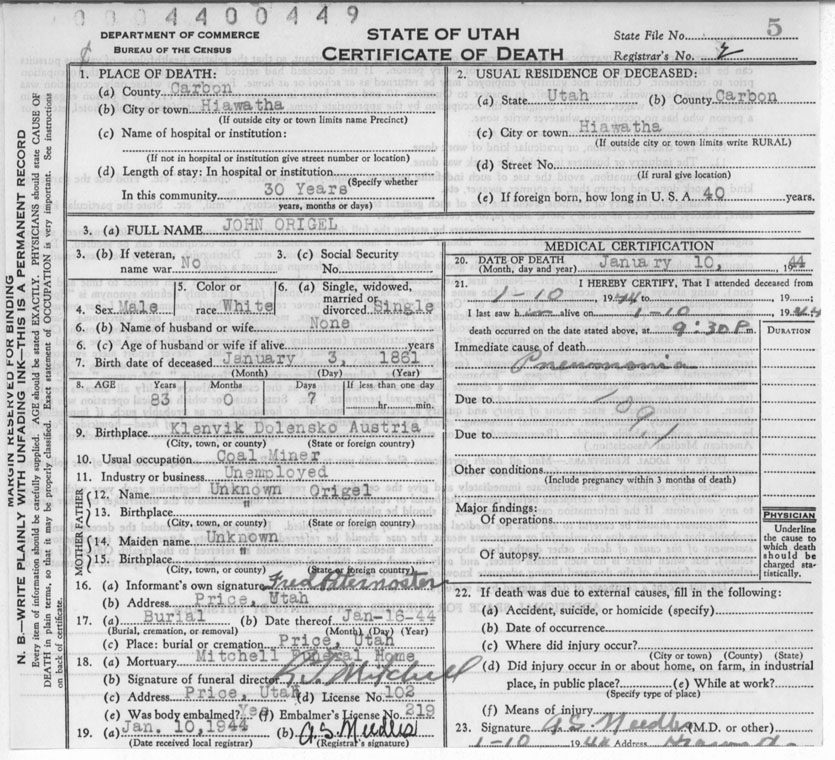 0004400449
DEPARTMENT OF COMMERCE
BUREAU OF THE CENSUS
STATE OF UTAH
CERTIFICATE OF DEATH
State File No. 5
Registrar's No. 2
MARGIN RESERVED FOR BINDING
N. B.—WRITE PLAINLY WITH UNFADING INK—THIS IS A PERMANENT RECORD
Every item of information should be carefully supplied. AGE should be stated EXACTLY. PHYSICIANS should state CAUSE OF
DEATH in plain terms, so that it may be properly classified. Exact statement of OCCUPATION is very important. See instructions
on back of certificate.
1. PLACE OF DEATH:
(a) County Carbon
(b) City or town Hiawatha
(If outside city or town limits name Precinct)
(c) Name of hospital or institution:
(If not in hospital or institution give street number or location)
(d) Length of stay: In hospital or institution
(Specify whether
In this community 30 Years
years, months or days)
2. USUAL RESIDENCE OF DECEASED:
(a) State Utah (b) County Carbon
(c) City or town Hiawatha
(If outside city or town limits write RURAL)
(d) Street No.
(If rural give location)
(e) If foreign born, how long in U. S. A. 40 years.
3. (a) FULL NAME JOHN ORIGEL
3. (b) If veteran, name war No
3. (c) Social Security No.
4. Sex Male
5. Color or race White
6. (a) Single, widowed, married or divorced Single
6. (b) Name of husband or wife None
6. (c) Age of husband or wife if alive years
7. Birth date of deceased January 3, 1861
(Month) (Day) (Year)
8. AGE Years Months Days If less than one day
83 0 7 hr. min.
9. Birthplace Klenvik Dolensko Austria
(City, town, or county) (State or foreign country)
10. Usual occupation Coal Miner
11. Industry or business Unemployed
FATHER
12. Name Unknown Origel
13. Birthplace "
(City, town, or county) (State or foreign country)
MOTHER
14. Maiden name Unknown
15. Birthplace "
(City, town, or county) (State or foreign country)
16. (a) Informant's own signature Fred Paternoster
(b) Address Price, Utah
17. (a) Burial (b) Date thereof Jan-16-44
(Burial, cremation, or removal) (Month) (Day) (Year)
(c) Place: burial or cremation Price, Utah
18. (a) Mortuary Mitchell Funeral Home
(b) Signature of funeral director Mitchell
(c) Address Price, Utah (d) License No. 102
(e) Was body embalmed? Yes (f) Embalmer's License No. 219
19. (a) Jan. 10, 1944 (b) A.S. Needles
(Date received local registrar) (Registrar's signature)
MEDICAL CERTIFICATION
20. DATE OF DEATH January 10, 1944
(Month, day and year)
21. I HEREBY CERTIFY, That I attended deceased from
1-10 1944 to 19 ;
I last saw h im alive on 1-10 1944
death occurred on the date stated above, at 9:30 P m.
DURATION
Immediate cause of death
Pneumonia
Due to 109
Due to
Other conditions
(Include pregnancy within 3 months of death)
Major findings:
Of operations
Of autopsy
PHYSICIAN
Underline
the cause to
which death
should be
charged sta-
tistically.
22. If death was due to external causes, fill in the following:
(a) Accident, suicide, or homicide (specify)
(b) Date of occurrence
(c) Where did injury occur?
(City or town) (County) (State)
(d) Did injury occur in or about home, on farm, in industrial
place, in public place? (e) While at work?
(Specify type of place)
(f) Means of injury
23. Signature A.S. Needles (M.D. or other)
1-10 1944 Address